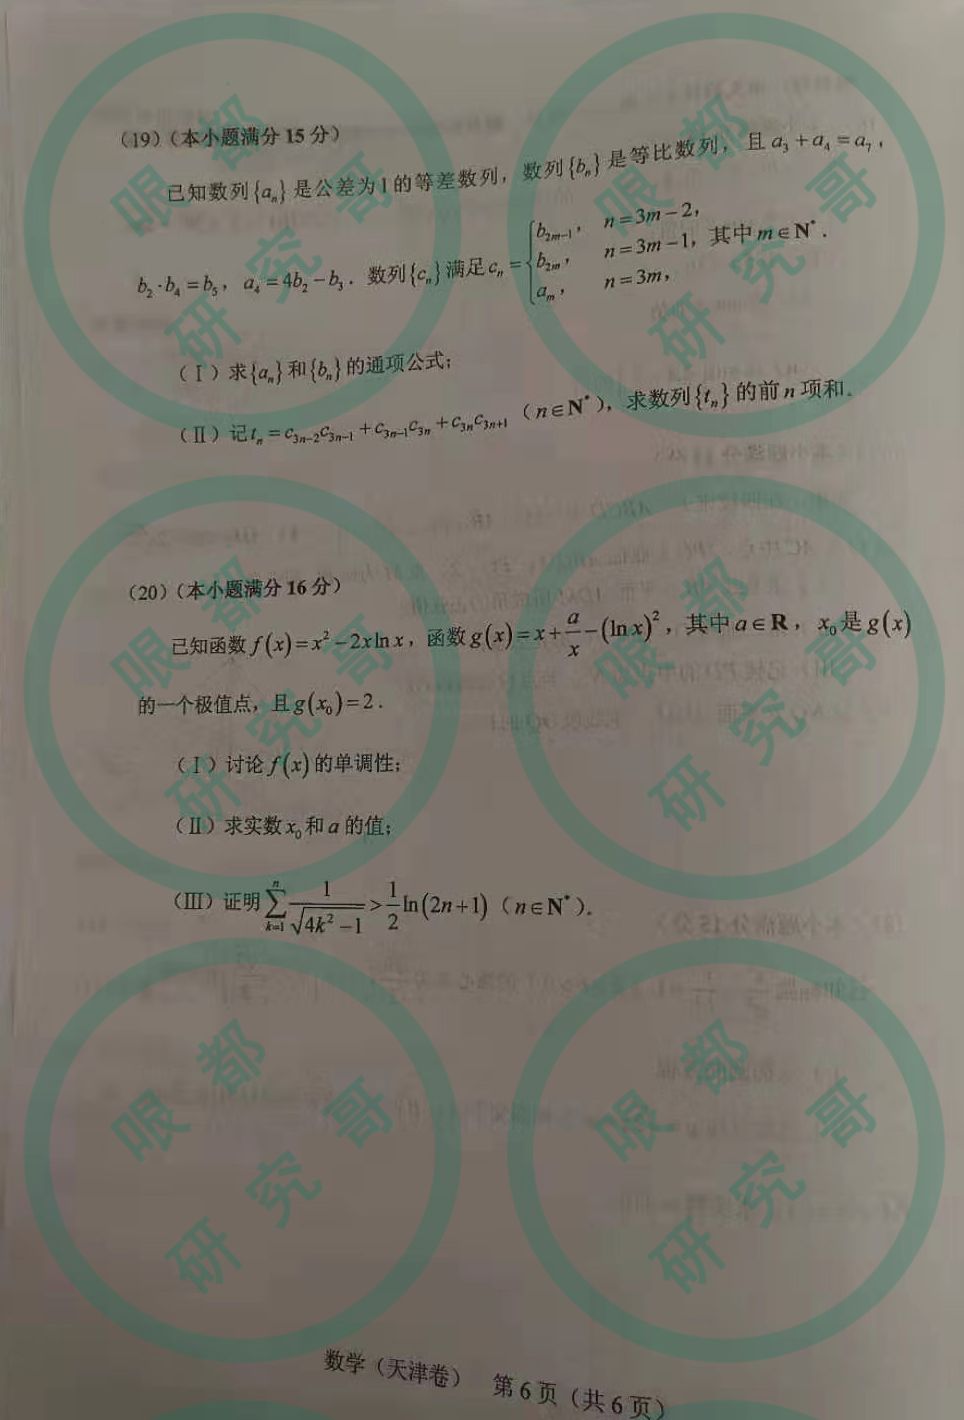 (19)(本小题满分 15 分)
已知数列{aₙ}是公差为1的等差数列，数列{bₙ}是等比数列，且 a₃ + a₄ = a₇，
b₂·b₄ = b₅，a₄ = 4b₂ − b₃．数列{cₙ}满足 cₙ = { b₂ₘ₋₁， n = 3m − 2，
b₂ₘ， n = 3m − 1，其中 m ∈ N*．
aₘ， n = 3m，
(Ⅰ) 求{aₙ}和{bₙ}的通项公式；
(Ⅱ) 记 tₙ = c₃ₙ₋₂c₃ₙ₋₁ + c₃ₙ₋₁c₃ₙ + c₃ₙc₃ₙ₊₁ (n ∈ N*)，求数列{tₙ}的前 n 项和．
(20)(本小题满分 16 分)
已知函数 f(x) = x² − 2x ln x，函数 g(x) = x + a/x − (ln x)²，其中 a ∈ R，x₀ 是 g(x)
的一个极值点，且 g(x₀) = 2．
(Ⅰ) 讨论 f(x) 的单调性；
(Ⅱ) 求实数 x₀ 和 a 的值；
(Ⅲ) 证明 ∑ₖ₌₁ⁿ 1/√(4k² − 1) > 1/2 ln(2n + 1) (n ∈ N*)．
数学（天津卷） 第 6 页（共 6 页）
眼都研究哥
眼都研究哥
眼都研究哥
眼都研究哥
眼都研究哥
眼都研究哥